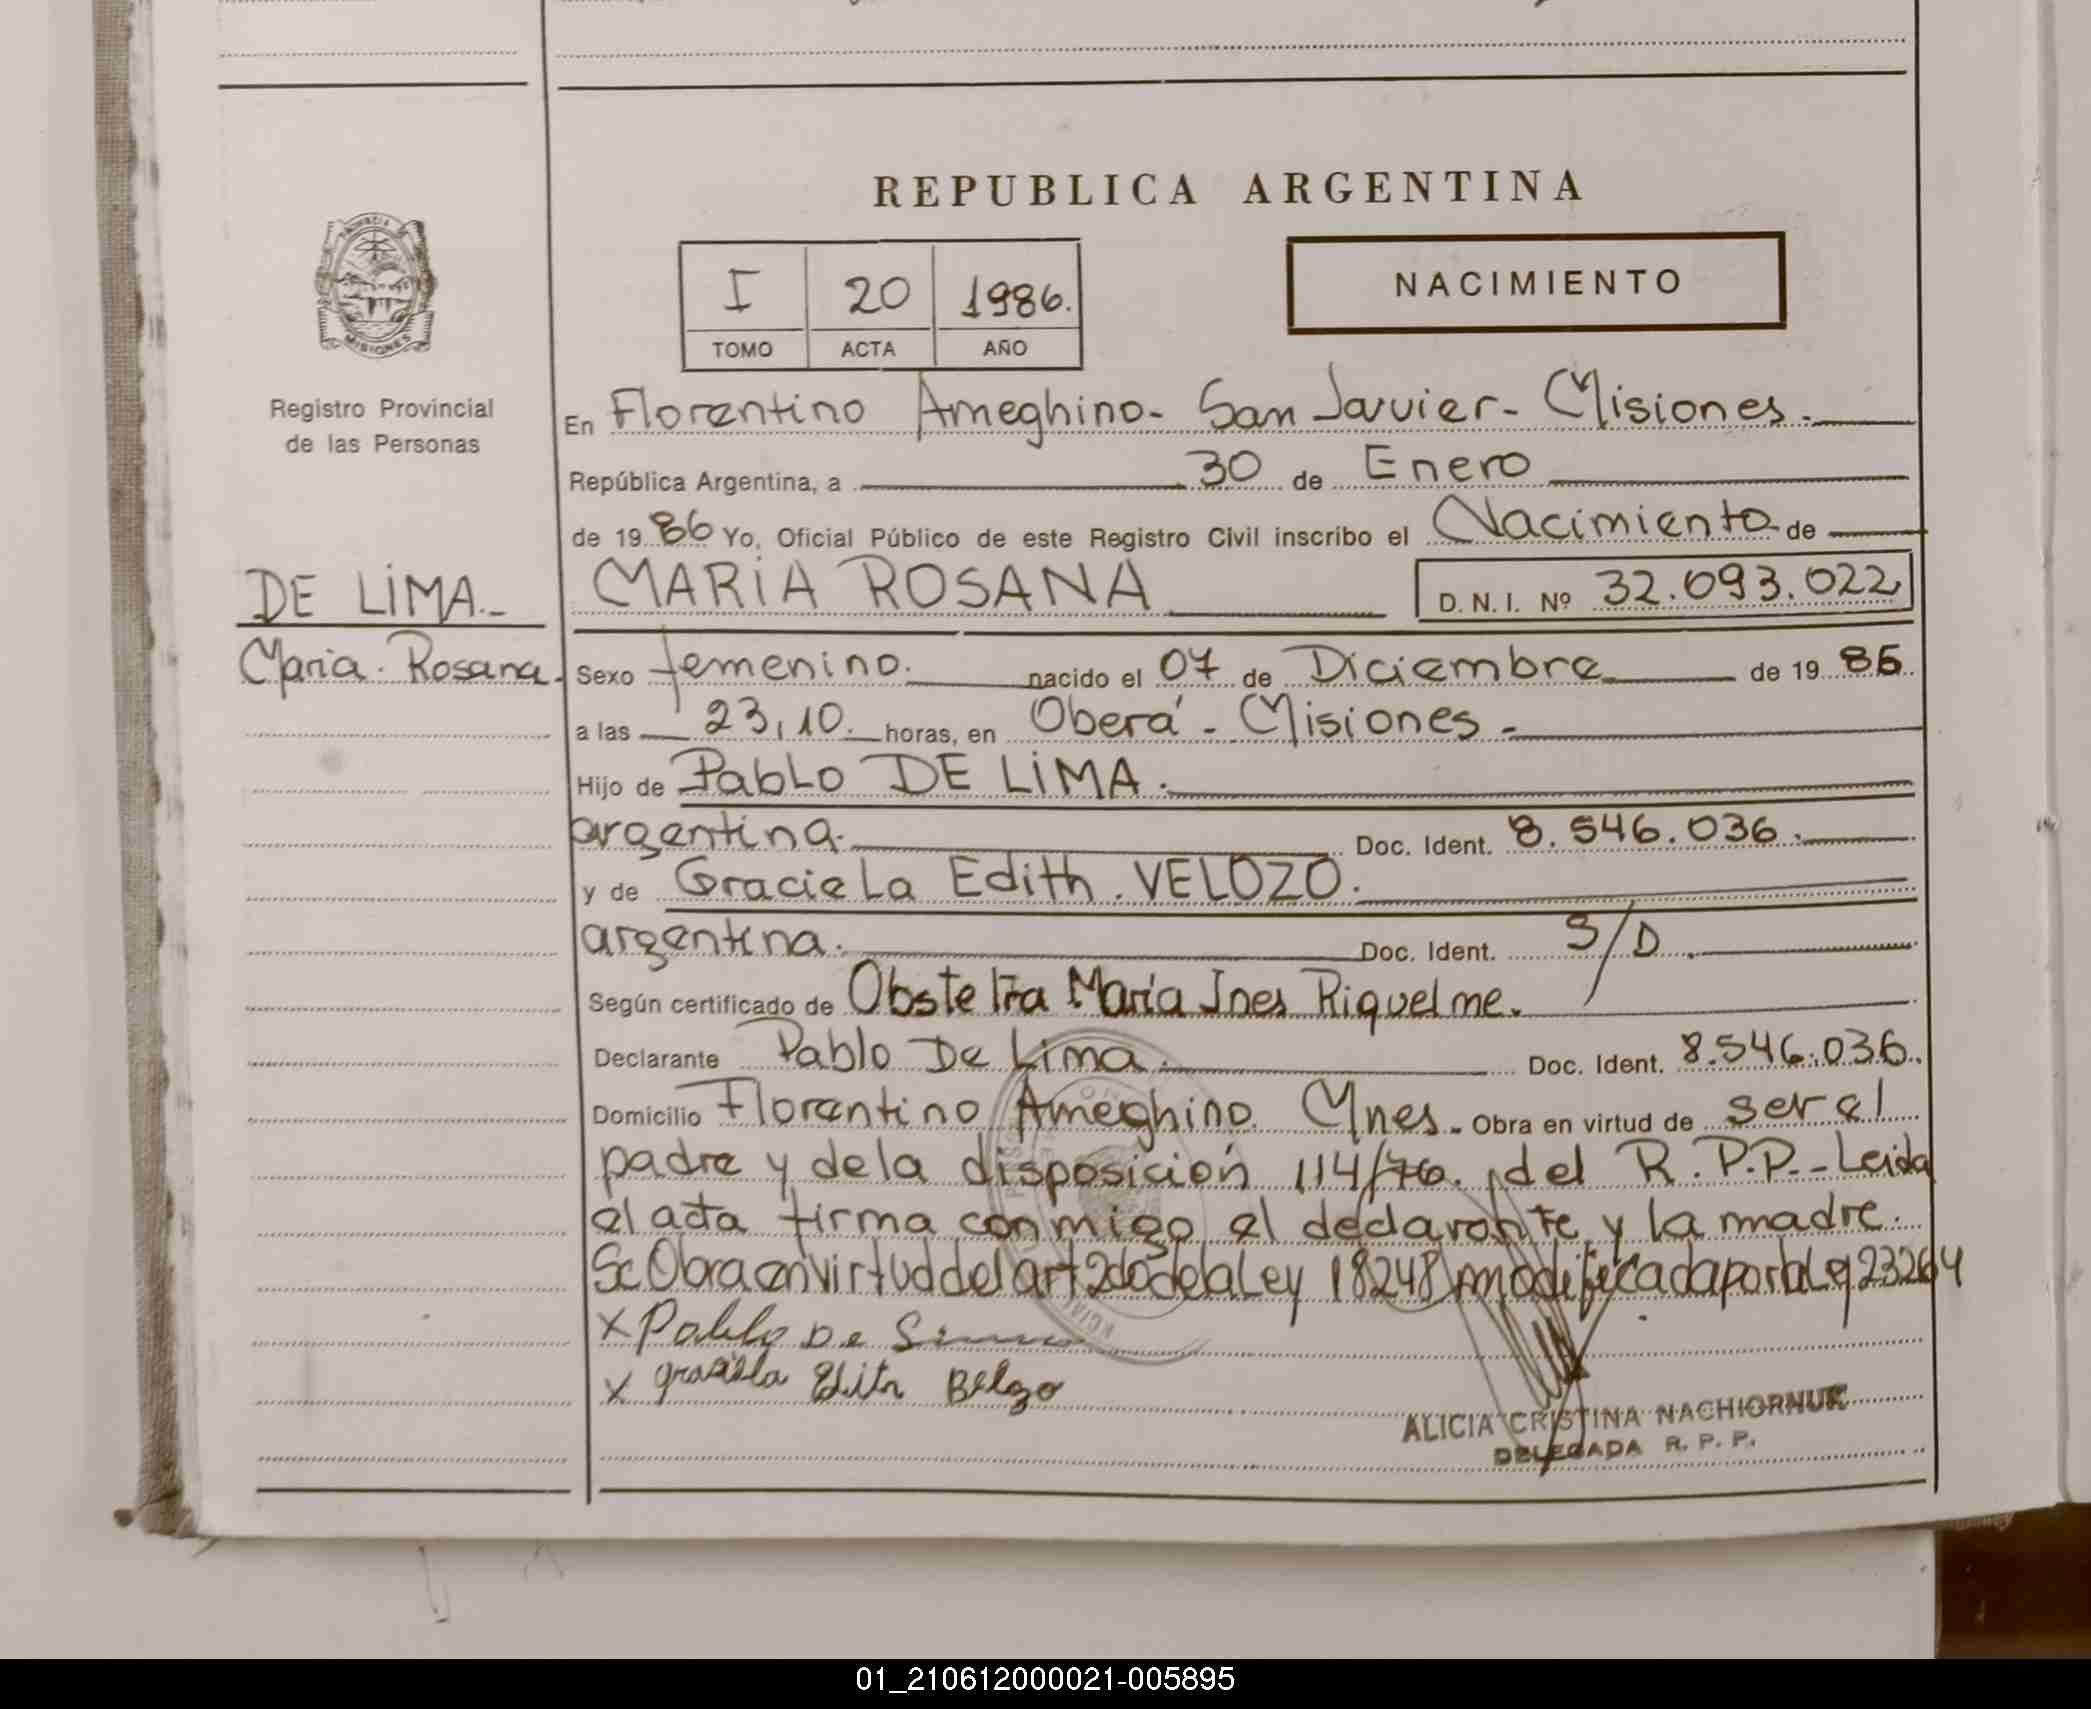 REPUBLICA ARGENTINA
I 20 1986.
TOMO ACTA AÑO
NACIMIENTO
PROVINCIA
MISIONES
Registro Provincial
de las Personas
En Florentino Ameghino- San Javier- Misiones.
República Argentina, a 30 de Enero
de 19 86 Yo, Oficial Público de este Registro Civil inscribo el Nacimiento de
DE LiMA.-
Maria Rosana.
MARiA ROSANA D. N. I. Nº 32.093.022
Sexo femenino. nacido el 07 de Diciembre de 19 85
a las 23,10. horas, en Oberá - Misiones -
Hijo de Pablo DE LiMA.
argentina. Doc. Ident. 8.546.036.
y de Graciela Edith. VELOZO.
argentina. Doc. Ident. S/D.
Según certificado de Obstetra María Ines Riquelme.
Declarante Pablo De Lima. Doc. Ident. 8.546.036.
Domicilio Florentino Ameghino. Mnes. Obra en virtud de ser el
padre y de la disposición 114/76. del R.P.P.- Leida
el acta firma conmigo el declarante y la madre.
Se Obra en virtud del art 2do de la Ley 18248 modificada por la Ley 23264
x Pablo De
x graciela Edita Belozo
ALICIA CRISTINA NACHIORNUK
DELEGADA R. P. P.
01_210612000021-005895